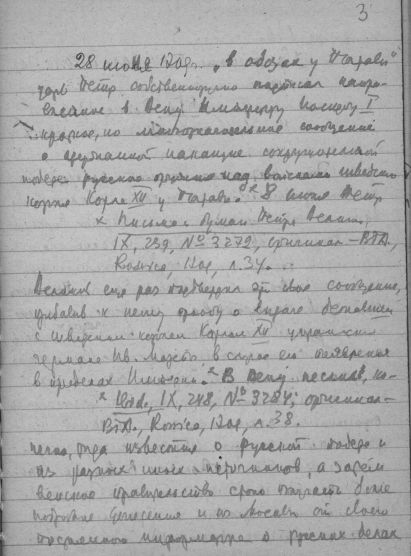 3
28 июня 1709г. „в обозах у Полтавы"
царь Петр собственноручно подписал направ-
ленное в Вену Императору Иосифу I
краткое, но многозначительное сообщение
о одержанной накануне сокрушительной
победе русского оружия над войсками шведского
короля Карла XII у Полтавы. 8 июля Петр
x Письма и бумаги Петра Великого,
IX, 239, № 3272, оригинал – ВГА,
Rossica, 1709, л. 34.
Великий еще раз подтвердил это свое сообщение,
к нему просьбу о выдаче бежавшего
с шведским королем Карлом XII украинского
гетмана Ив. Мазепы в случае его появления
в пределах Империи. x В Вену поспели, ко-
x Ibid., IX, 248, № 3284; оригинал –
ВГА, Rossica, 1709, л. 38.
нечно, туда известия о русской победе и
из разных иных источников, а затем
венское правительство стало получать более
подробные донесения и из Москвы от своего
о русских делах